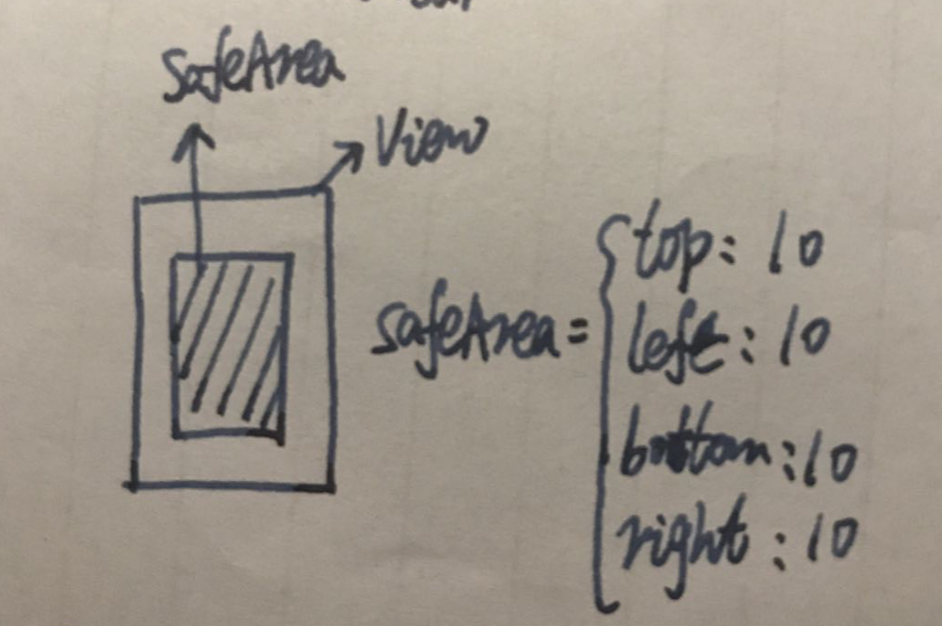 SafeArea
View
safeArea = {
top: 10
left: 10
bottom: 10
right: 10